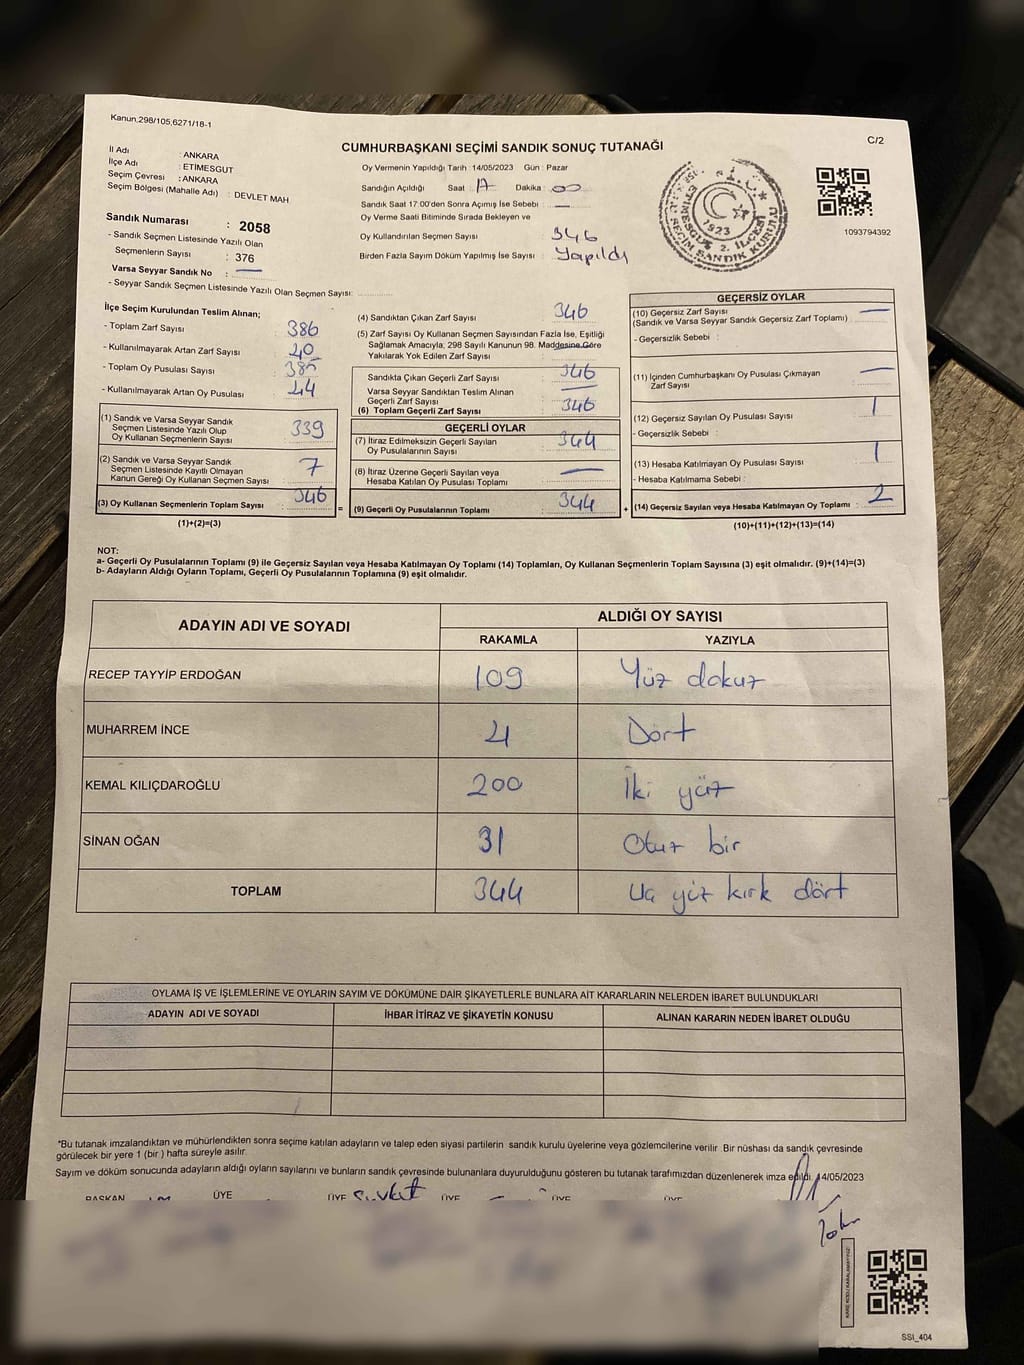 Kanun,298/105,6271/18-1
C/2
CUMHURBAŞKANI SEÇİMİ SANDIK SONUÇ TUTANAĞI
İl Adı : ANKARA
İlçe Adı : ETİMESGUT
Seçim Çevresi : ANKARA
Seçim Bölgesi (Mahalle Adı) : DEVLET MAH
Sandık Numarası : 2058
- Sandık Seçmen Listesinde Yazılı Olan
Seçmenlerin Sayısı : 376
Varsa Seyyar Sandık No : —
- Seyyar Sandık Seçmen Listesinde Yazılı Olan Seçmen Sayısı:
Oy Vermenin Yapıldığı Tarih : 14/05/2023 Gün : Pazar
Sandığın Açıldığı Saat : 17 Dakika : 00
Sandık Saat 17:00'den Sonra Açımış İse Sebebi : —
Oy Verme Saati Bitiminde Sırada Bekleyen ve
Oy Kullandırılan Seçmen Sayısı : 346
Birden Fazla Sayım Döküm Yapılmış İse Sayısı : Yapıldı
1923
ETİMESGUT 2. İLÇESİ
SEÇİM SANDIK KURULU
1093794392
İlçe Seçim Kurulundan Teslim Alınan;
- Toplam Zarf Sayısı : 386
- Kullanılmayarak Artan Zarf Sayısı : 40
- Toplam Oy Pusulası Sayısı :
- Kullanılmayarak Artan Oy Pusulası : 44
(1) Sandık ve Varsa Seyyar Sandık
Seçmen Listesinde Yazılı Olup
Oy Kullanan Seçmenlerin Sayısı : 339
(2) Sandık ve Varsa Seyyar Sandık
Seçmen Listesinde Kayıtlı Olmayan
Kanun Gereği Oy Kullanan Seçmen Sayısı : 7
(3) Oy Kullanan Seçmenlerin Toplam Sayısı : 346
(1)+(2)=(3)
(4) Sandıktan Çıkan Zarf Sayısı : 346
(5) Zarf Sayısı Oy Kullanan Seçmen Sayısından Fazla İse, Eşitliği
Sağlamak Amacıyla; 298 Sayılı Kanunun 98. Maddesine Göre
Yakılarak Yok Edilen Zarf Sayısı : —
Sandıkta Çıkan Geçerli Zarf Sayısı : 346
Varsa Seyyar Sandıktan Teslim Alınan
Geçerli Zarf Sayısı : —
(6) Toplam Geçerli Zarf Sayısı : 346
GEÇERLİ OYLAR
(7) İtiraz Edilmeksizin Geçerli Sayılan
Oy Pusulalarının Sayısı : 344
(8) İtiraz Üzerine Geçerli Sayılan veya
Hesaba Katılan Oy Pusulası Toplamı : —
= (9) Geçerli Oy Pusulalarının Toplamı : 344
GEÇERSİZ OYLAR
(10) Geçersiz Zarf Sayısı : —
(Sandık ve Varsa Seyyar Sandık Geçersiz Zarf Toplamı)
- Geçersizlik Sebebi :
(11) İçinden Cumhurbaşkanı Oy Pusulası Çıkmayan
Zarf Sayısı : —
(12) Geçersiz Sayılan Oy Pusulası Sayısı : 1
- Geçersizlik Sebebi :
(13) Hesaba Katılmayan Oy Pusulası Sayısı : 1
- Hesaba Katılmama Sebebi :
+ (14) Geçersiz Sayılan veya Hesaba Katılmayan Oy Toplamı : 2
(10)+(11)+(12)+(13)=(14)
NOT:
a- Geçerli Oy Pusulalarının Toplamı (9) ile Geçersiz Sayılan veya Hesaba Katılmayan Oy Toplamı (14) Toplamları, Oy Kullanan Seçmenlerin Toplam Sayısına (3) eşit olmalıdır. (9)+(14)=(3)
b- Adayların Aldığı Oyların Toplamı, Geçerli Oy Pusulalarının Toplamına (9) eşit olmalıdır.
ADAYIN ADI VE SOYADI ALDIĞI OY SAYISI
RAKAMLA YAZIYLA
RECEP TAYYİP ERDOĞAN 109 Yüz dokuz
MUHARREM İNCE 4 Dört
KEMAL KILIÇDAROĞLU 200 İki yüz
SİNAN OĞAN 31 Otuz bir
TOPLAM 344 Üç yüz kırk dört
OYLAMA İŞ VE İŞLEMLERİNE VE OYLARIN SAYIM VE DÖKÜMÜNE DAİR ŞİKAYETLERLE BUNLARA AİT KARARLARIN NELERDEN İBARET BULUNDUKLARI
ADAYIN ADI VE SOYADI İHBAR İTİRAZ VE ŞİKAYETİN KONUSU ALINAN KARARIN NEDEN İBARET OLDUĞU
*Bu tutanak imzalandıktan ve mühürlendikten sonra seçime katılan adayların ve talep eden siyasi partilerin sandık kurulu üyelerine veya gözlemcilerine verilir. Bir nüshası da sandık çevresinde
görülecek bir yere 1 (bir ) hafta süreyle asılır.
Sayım ve döküm sonucunda adayların aldığı oyların sayılarını ve bunların sandık çevresinde bulunanlara duyurulduğunu gösteren bu tutanak tarafımızdan düzenlenerek imza edildi. 14/05/2023
BAŞKAN ÜYE ÜYE ÜYE ÜYE ÜYE
KARE KODU KARALAMAYINIZ!
SSI_404